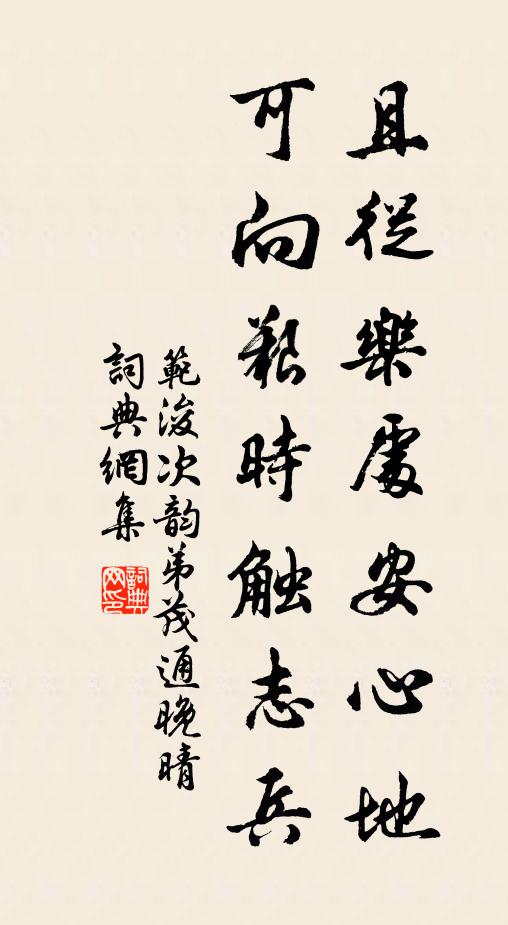 且從樂處安心地
可向艱時触志兵
範浚次韵弟茂通晚晴
詞典網集
詞典網印